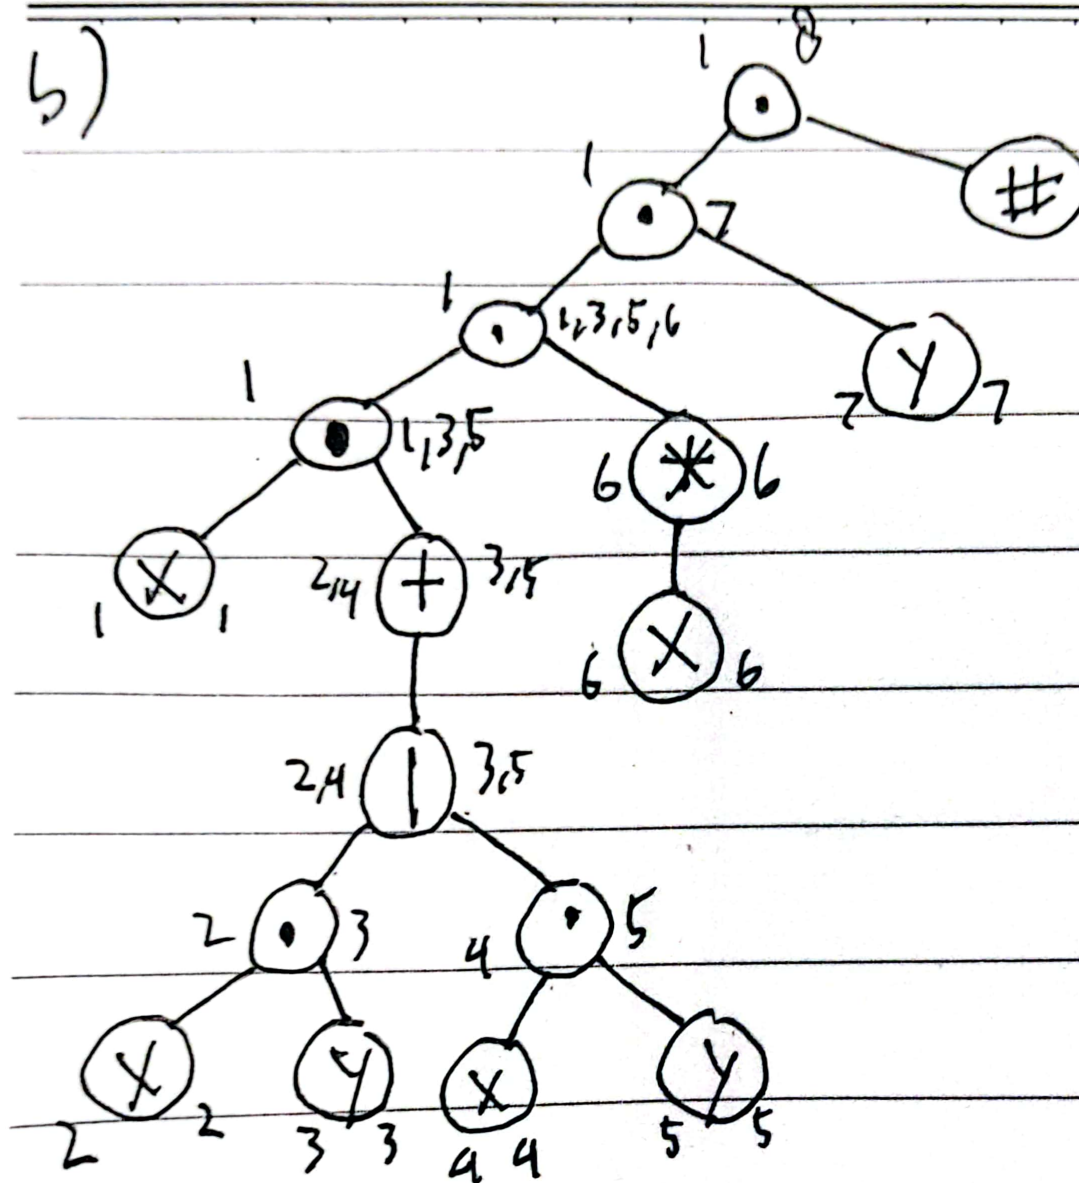 b)
1 8
•
#
1 • 7
1 • 1,3,5,6
7 Y 7
1 • 1,3,5
6 * 6
1 X 1
2,4 + 3,5
6 X 6
2,4 | 3,5
2 • 3
4 • 5
2 X 2
3 Y 3
4 X 4
5 Y 5